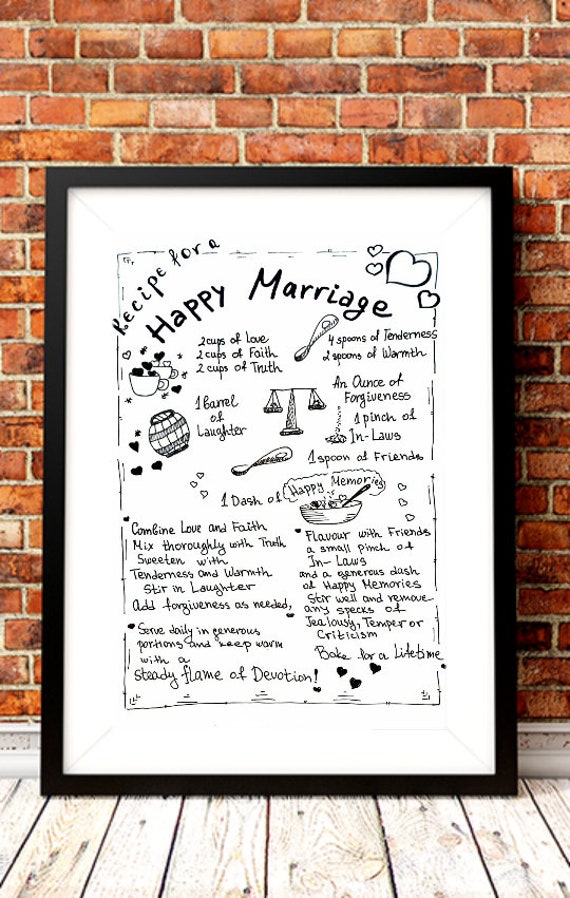 Recipe for a
Happy Marriage
2cups of Love
2 cups of Faith
2 cups of Truth
4 spoons of Tenderness
2 spoons of Warmth
1 barrel
of
Laughter
An Ounce of
Forgiveness
1 pinch of
In-Laws
1 spoon of Friends
1 Dash of Happy Memories
Combine Love and Faith
Mix thoroughly with Truth
Sweeten with
Tenderness and Warmth
Stir in Laughter
Add forgiveness as needed,
Serve daily in generous
portions and keep warm
with a
steady flame of Devotion!
Flavour with Friends
a small pinch of
In-Laws
and a generous dash
of Happy Memories
Stir well and remove
any specks of
Jealously, Temper or
Criticism
Bake for a Lifetime